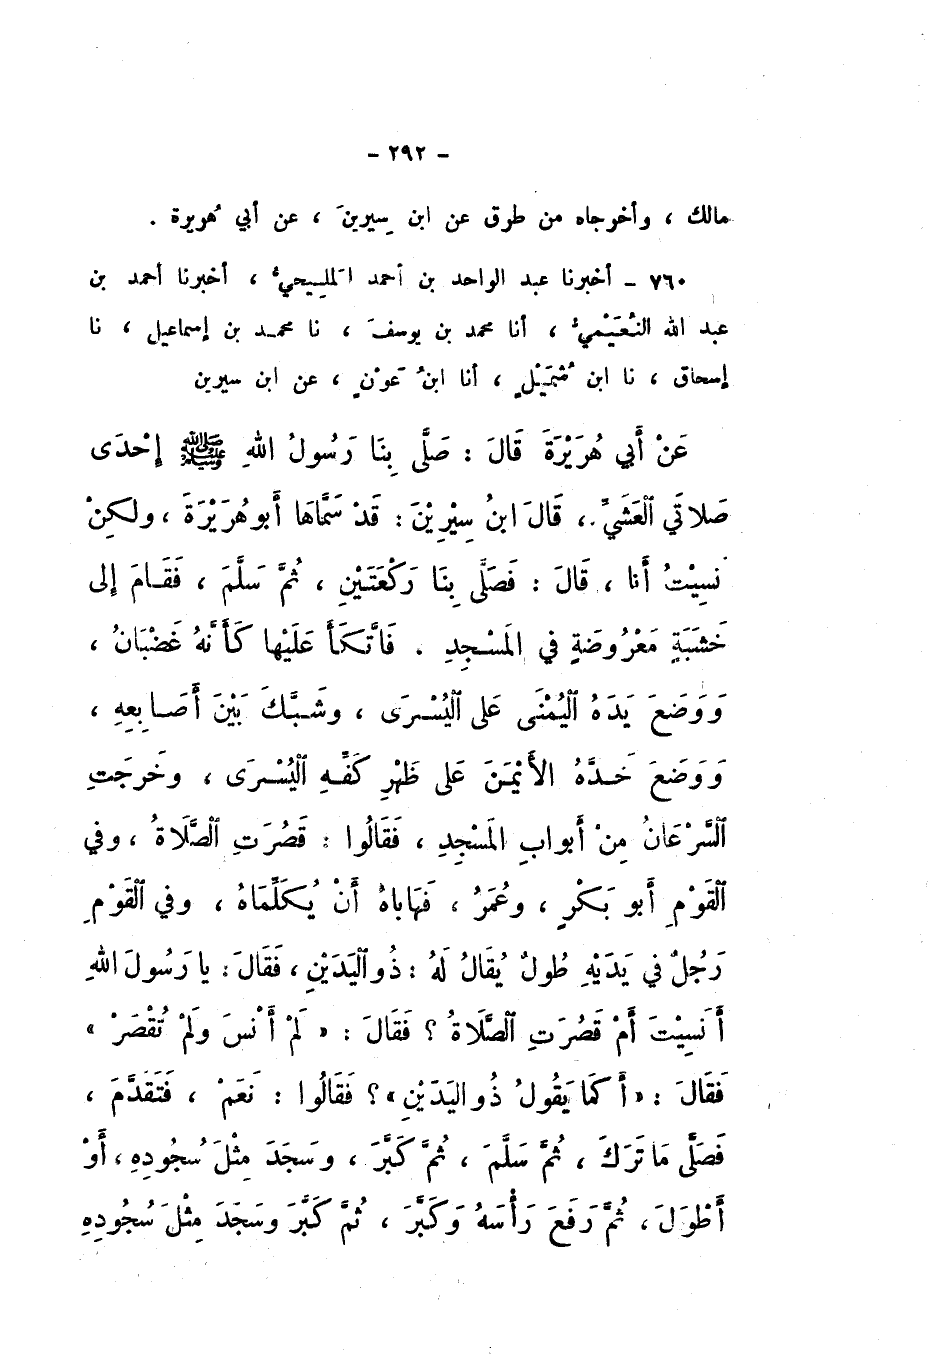 - ٢٩٢ -
مالك ، وأخرجاه من طرق عن ابن سيرينَ ، عن أبي هُريرة .
٧٦٠ - أخبرنا عبد الواحد بن أحمد المَلِيحيُّ ، أخبرنا أحمد بن
عبد الله النُّعَيْميُّ ، أنا محمد بن يوسفَ ، نا محمد بن إسماعيل ، نا
إسحاق ، نا ابن شُمَيْلٍ ، أنا ابنُ عَوْنٍ ، عن ابن سيرين
عَنْ أَبي هُرَيْرَةَ قَالَ : صَلَّى بِنَا رَسُولُ اللهِ ﷺ إِحْدَى
صَلاتَي ٱلْعَشَيِّ ، قَالَ ابنُ سِيْرِيْنَ : قَدْ سَمَّاهَا أَبو هُرَيْرَةَ ، ولكِنْ
نَسِيْتُ أَنا ، قَالَ : فَصَلَّى بِنَا رَكْعَتَيْنِ ، ثُمَّ سَلَّمَ ، فَقَامَ إِلى
خَشَبَةٍ مَعْرُوضَةٍ في المَسْجِدِ . فَاتَّكَأَ عَلَيْها كَأَنَّهُ غَضْبَانُ ،
وَوَضَعَ يَدَهُ ٱلْيُمْنَى عَلى ٱلْيُسْرَى ، وشَبَّكَ بَيْنَ أَصَابِعِهِ ،
وَوَضَعَ خَدَّهُ الأَيْمَنَ عَلى ظَهْرِ كَفِّهِ ٱلْيُسْرَى ، وخَرَجَتِ
ٱلسَّرْعَانُ مِنْ أَبوابِ المَسْجِدِ ، فَقَالُوا : قَصُرَتِ ٱلصَّلَاةُ ، وفي
ٱلْقَوْمِ أَبو بَكْرٍ ، وعُمَرُ ، فَهَاباهُ أَنْ يُكَلِّمَاهُ ، وفي ٱلْقَوْمِ
رَجُلٌ في يَدَيْهِ طُولٌ يُقَالُ لَهُ : ذُو ٱلْيَدَيْنِ ، فَقَالَ : يا رَسُولَ اللهِ
أَنَسِيْتَ أَمْ قَصُرَتِ ٱلصَّلَاةُ ؟ فَقَالَ : « لَمْ أَنْسَ ولَمْ تُقْصَرْ »
فَقَالَ : « أَكَمَا يَقُولُ ذُو اليَدَيْنِ » ؟ فَقَالُوا : نَعَمْ ، فَتَقَدَّمَ ،
فَصَلَّى مَا تَرَكَ ، ثُمَّ سَلَّمَ ، ثُمَّ كَبَّرَ ، وسَجَدَ مِثْلَ سُجُودِهِ ، أَوْ
أَطْوَلَ ، ثُمَّ رَفَعَ رَأْسَهُ وَكَبَّرَ ، ثُمَّ كَبَّرَ وسَجَدَ مِثْلَ سُجُودِهِ